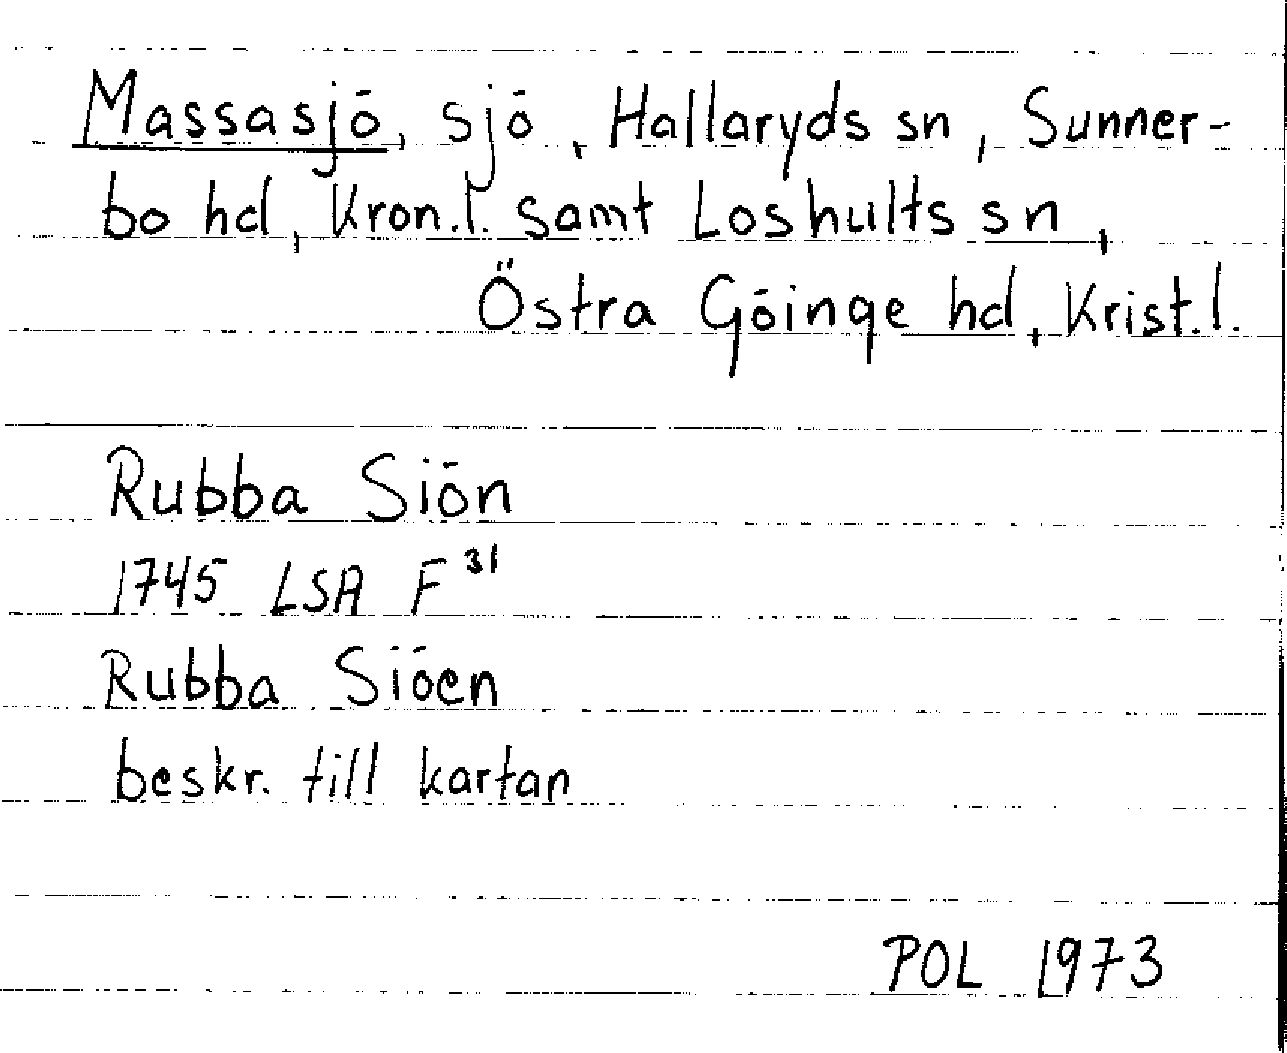 Massasjö, sjö, Hallaryds sn, Sunner-
bo hd, Kron.l. samt Loshults sn,
Östra Göinge hd, Krist.l.
Rubba Siön
1745 LSA F³¹
Rubba Siöen
beskr. till kartan
POL 1973